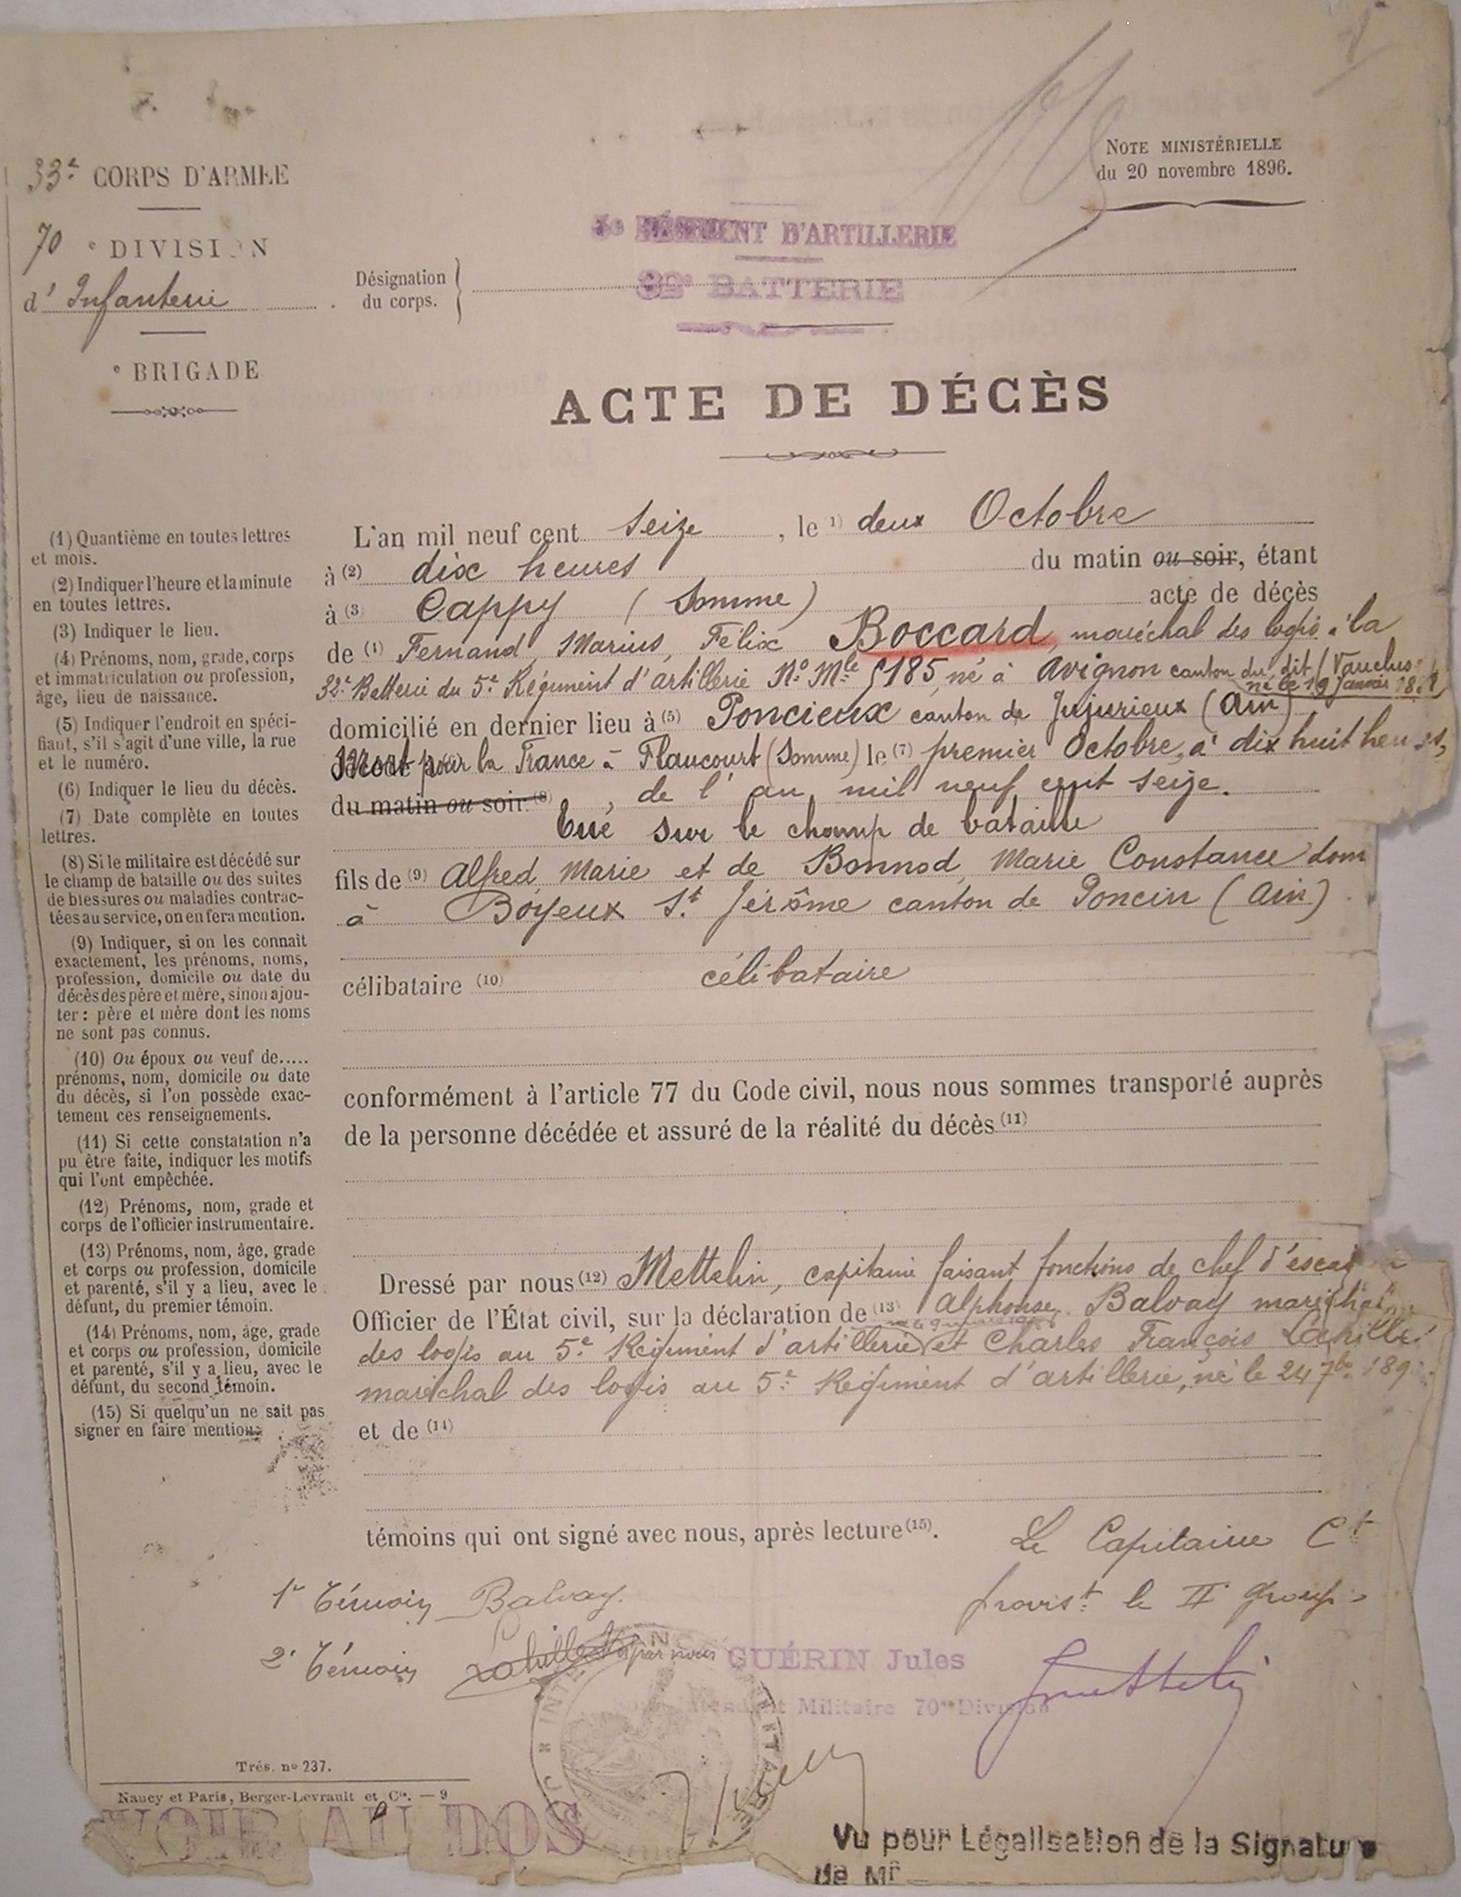 33e CORPS D'ARMÉE
70e DIVISION
d'Infanterie
e BRIGADE
NOTE MINISTÉRIELLE
du 20 novembre 1896.
5e RÉGIMENT D'ARTILLERIE
Désignation
du corps.
32e BATTERIE
ACTE DE DÉCÈS
(1) Quantième en toutes lettres
et mois.
(2) Indiquer l'heure et la minute
en toutes lettres.
(3) Indiquer le lieu.
(4) Prénoms, nom, grade, corps
et immatriculation ou profession,
âge, lieu de naissance.
(5) Indiquer l'endroit en spéci-
fiant, s'il s'agit d'une ville, la rue
et le numéro.
(6) Indiquer le lieu du décès.
(7) Date complète en toutes
lettres.
(8) Si le militaire est décédé sur
le champ de bataille ou des suites
de blessures ou maladies contrac-
tées au service, on en fera mention.
(9) Indiquer, si on les connaît
exactement, les prénoms, noms,
profession, domicile ou date du
décès des père et mère, sinon ajou-
ter : père et mère dont les noms
ne sont pas connus.
(10) Ou époux ou veuf de.....
prénoms, nom, domicile ou date
du décès, si l'on possède exac-
tement ces renseignements.
(11) Si cette constatation n'a
pu être faite, indiquer les motifs
qui l'ont empêchée.
(12) Prénoms, nom, grade et
corps de l'officier instrumentaire.
(13) Prénoms, nom, âge, grade
et corps ou profession, domicile
et parenté, s'il y a lieu, avec le
défunt, du premier témoin.
(14) Prénoms, nom, âge, grade
et corps ou profession, domicile
et parenté, s'il y a lieu, avec le
défunt, du second témoin.
(15) Si quelqu'un ne sait pas
signer en faire mention.
L'an mil neuf cent seize, le (1) deux Octobre
à (2) dix heures du matin ou soir, étant
à (3) Cappy (Somme) acte de décès
de (1) Fernand, Marius, Félix Boccard, maréchal des logis à la
32e Batterie du 5e Régiment d'artillerie No Mle 5185, né à Avignon canton du dit (Vaucluse)
né le 19 janvier
domicilié en dernier lieu à (5) Poncieux canton de Jujurieux (Ain)
Mort pour la France à Flaucourt (Somme) le (7) premier Octobre, à dix huit heures,
du matin ou soir (8), de l'an mil neuf cent seize.
Tué sur le champ de bataille
fils de (9) Alfred Marie et de Bonnod, Marie Constance dom
à Boyeux St Jérôme canton de Poncin (Ain)
célibataire (10) célibataire
conformément à l'article 77 du Code civil, nous nous sommes transporté auprès
de la personne décédée et assuré de la réalité du décès (11)
Dressé par nous (12) Mettelin, capitaine faisant fonctions de chef d'escad
Officier de l'État civil, sur la déclaration de (13) Alphonse Balvay maréchal
des logis au 5e Régiment d'artillerie et Charles François
maréchal des logis au 5e Régiment d'artillerie, né le 24 7bre 189
et de (14)
témoins qui ont signé avec nous, après lecture (15).
Le Capitaine Ct
provist le IIe groupe
1r Témoin Balvay
2e Témoin par nous
GUÉRIN Jules
Militaire 70e Division
Mettelin
Trés. no 237.
Nancy et Paris, Berger-Levrault et Cie. — 9
VOIR AU DOS
Vu pour Légalisation de la Signatu
de Mr